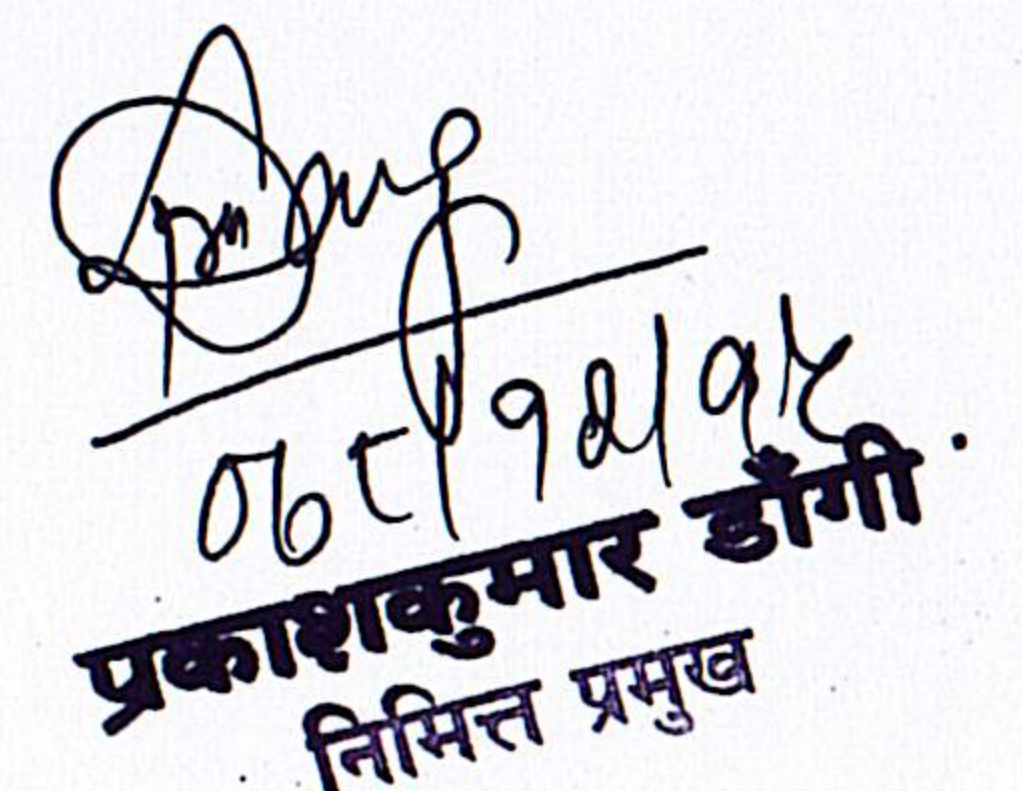 ०७८/१२/१५
प्रकाशकुमार डाँगी
निमित्त प्रमुख